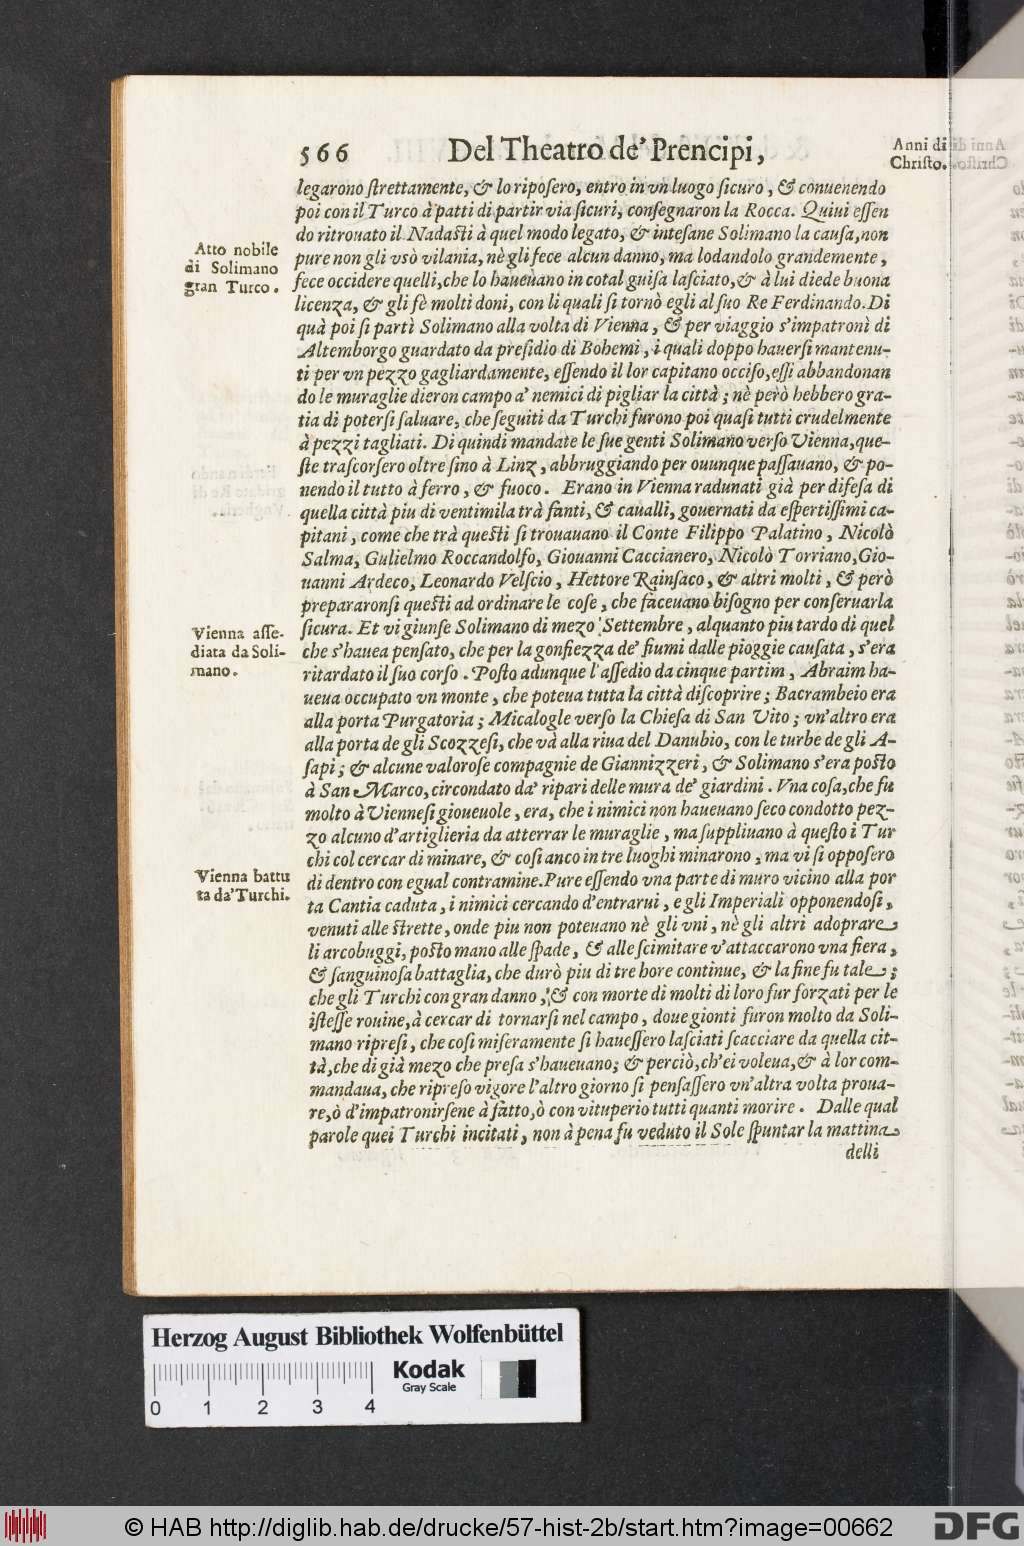 566 Del Theatro de' Prencipi,
Anni di
Christo.
legarono ſtrettamente, & lo ripoſero, entro in vn luogo ſicuro, & conuenendo
poi con il Turco à patti di partir via ſicuri, conſegnaron la Rocca. Quiui eſſen
do ritrouato il Nadaſti à quel modo legato, & inteſane Solimano la cauſa, non
pure non gli vsò vilania, nè gli fece alcun danno, ma lodandolo grandemente,
fece occidere quelli, che lo haueuano in cotal guiſa laſciato, & à lui diede buona
licenza, & gli fè molti doni, con li quali ſi tornò egli al ſuo Re Ferdinando. Di
quà poi ſi partì Solimano alla volta di Vienna, & per viaggio s'impatronì di
Altemborgo guardato da preſidio di Bohemi, i quali doppo hauerſi mantenu-
ti per vn pezzo gagliardamente, eſſendo il lor capitano occiſo, eſſi abbandonan
do le muraglie dieron campo a' nemici di pigliar la città; nè però hebbero gra-
tia di poterſi ſaluare, che ſeguiti da Turchi furono poi quaſi tutti crudelmente
à pezzi tagliati. Di quindi mandate le ſue genti Solimano verſo Vienna, que-
ſte traſcorſero oltre ſino à Linz, abbruggiando per ouunque paſſauano, & po-
nendo il tutto à ferro, & fuoco. Erano in Vienna radunati già per difeſa di
quella città piu di ventimila trà fanti, & caualli, gouernati da eſpertiſſimi ca-
pitani, come che trà queſti ſi trouauano il Conte Filippo Palatino, Nicolò
Salma, Gulielmo Roccandolfo, Giouanni Caccianero, Nicolò Torriano, Gio-
uanni Ardeco, Leonardo Velſcio, Hettore Rainſaco, & altri molti, & però
prepararonſi queſti ad ordinare le coſe, che faceuano biſogno per conſeruarla
ſicura. Et vi giunſe Solimano di mezo Settembre, alquanto piu tardo di quel
che s'hauea penſato, che per la gonfiezza de' fiumi dalle pioggie cauſata, s'era
ritardato il ſuo corſo. Poſto adunque l'aſſedio da cinque partim, Abraim ha-
ueua occupato vn monte, che poteua tutta la città diſcoprire; Bacrambeio era
alla porta Purgatoria; Micalogle verſo la Chieſa di San Vito; vn'altro era
alla porta de gli Scozzeſi, che và alla riua del Danubio, con le turbe de gli A-
ſapi; & alcune valoroſe compagnie de Giannizzeri, & Solimano s'era poſto
à San Marco, circondato da' ripari delle mura de' giardini. Vna coſa, che fu
molto à Vienneſi gioueuole, era, che i nimici non haueuano ſeco condotto pez-
zo alcuno d'artiglieria da atterrar le muraglie, ma ſuppliuano à queſto i Tur
chi col cercar di minare, & coſi anco in tre luoghi minarono, ma vi ſi oppoſero
di dentro con egual contramine. Pure eſſendo vna parte di muro vicino alla por
ta Cantia caduta, i nimici cercando d'entrarui, e gli Imperiali opponendoſi,
venuti alle ſtrette, onde piu non poteuano nè gli vni, nè gli altri adoprare
li arcobuggi, poſto mano alle ſpade, & alle ſcimitare v'attaccarono vna fiera,
& ſanguinoſa battaglia, che durò piu di tre hore continue, & la fine fu tale;
che gli Turchi con gran danno, & con morte di molti di loro fur forzati per le
iſteſſe rouine, à cercar di tornarſi nel campo, doue gionti furon molto da Soli-
mano ripreſi, che coſi miſeramente ſi haueſſero laſciati ſcacciare da quella cit-
tà, che di già mezo che preſa s'haueuano; & perciò, ch'ei voleua, & à lor com-
mandaua, che ripreſo vigore l'altro giorno ſi penſaſſero vn'altra volta proua-
re, ò d'impatronirſene à fatto, ò con vituperio tutti quanti morire. Dalle qual
parole quei Turchi incitati, non à pena fu veduto il Sole ſpuntar la mattina
delli
Atto nobile
di Solimano
gran Turco.
Vienna aſſe-
diata da Soli-
mano.
Vienna battu
ta da' Turchi.
Herzog August Bibliothek Wolfenbüttel
Kodak
Gray Scale
0 1 2 3 4
© HAB http://diglib.hab.de/drucke/57-hist-2b/start.htm?image=00662
DFG